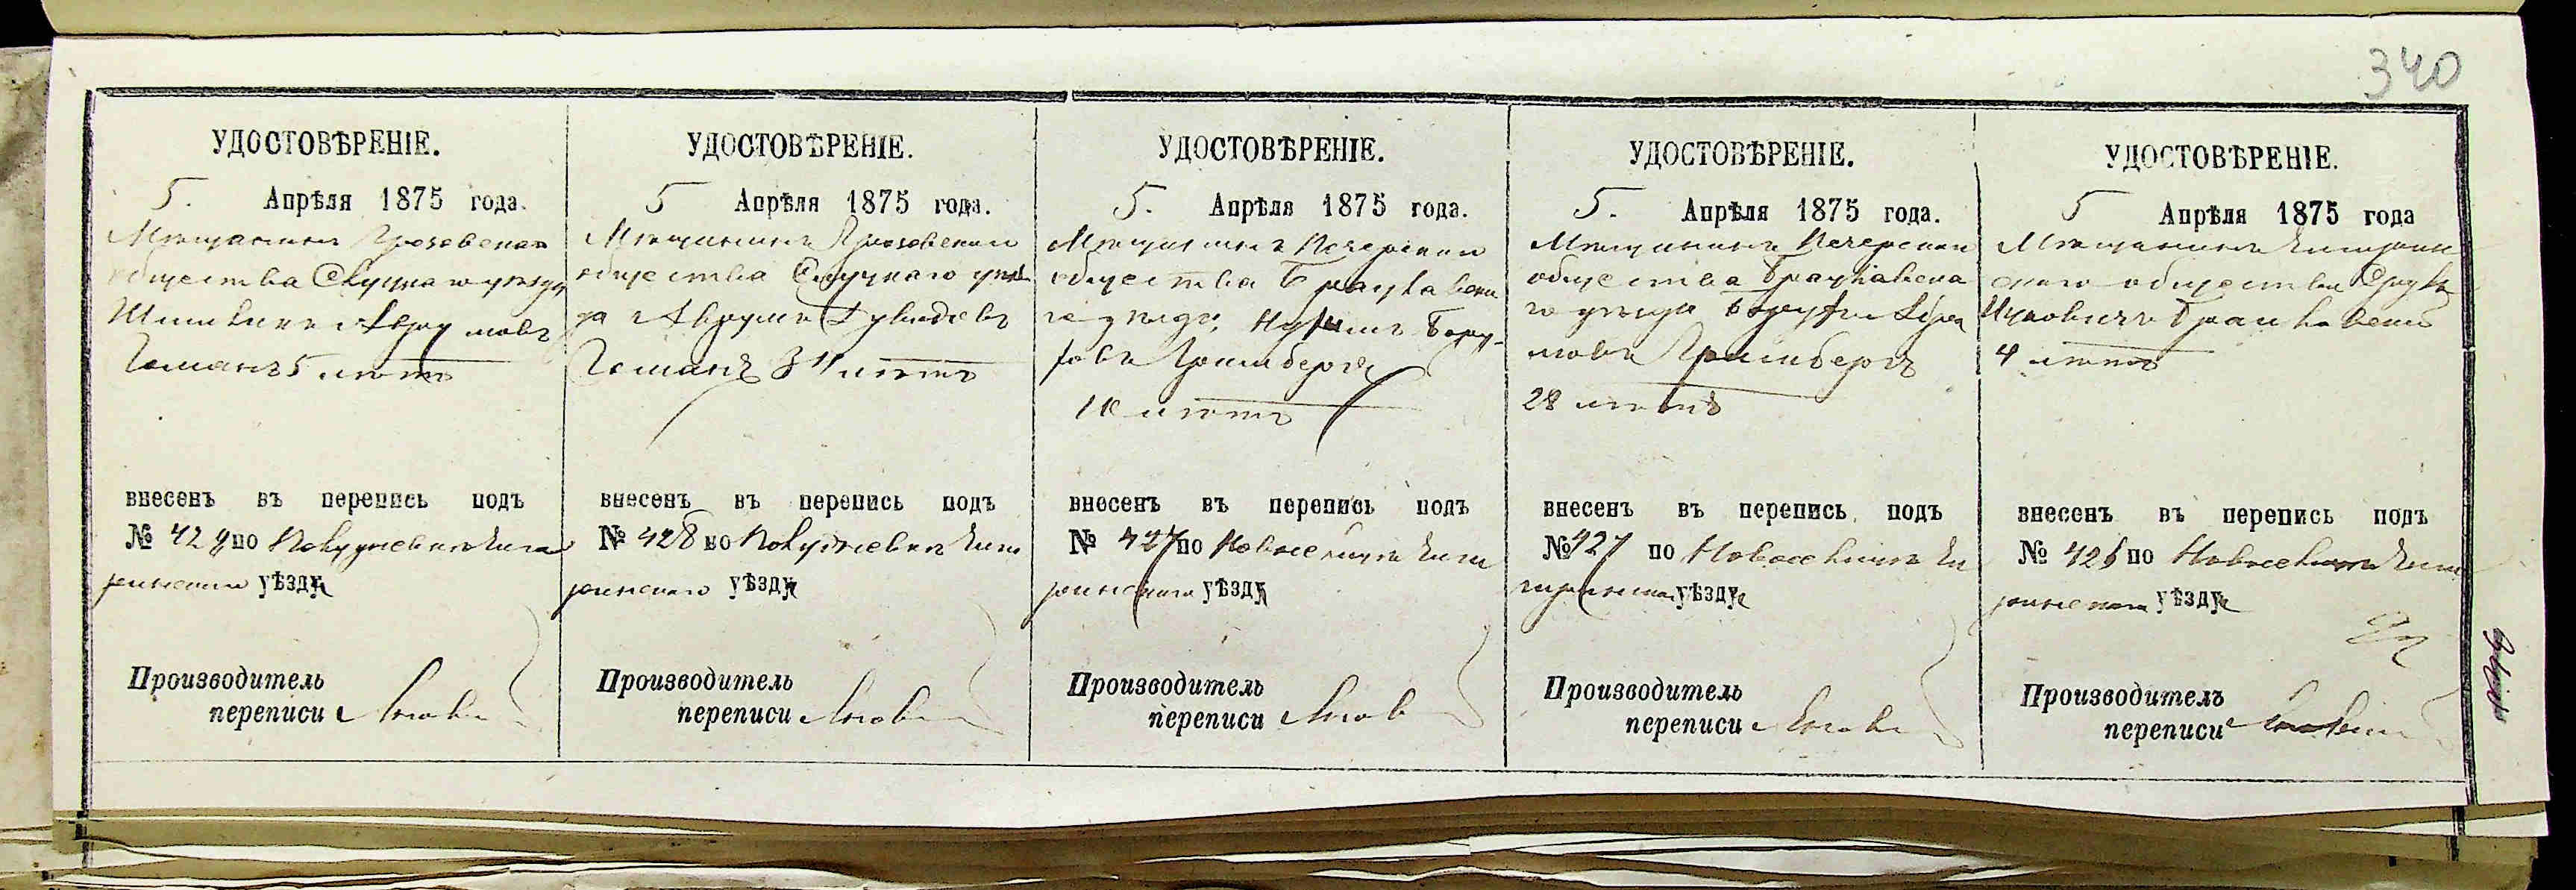 340
УДОСТОВѢРЕНІЕ.
5. Апрѣля 1875 года.
Мѣщанинъ Грозовскаго
общества Слуцкаго уѣзда
Аврумовъ
Геманъ 5 лѣтъ
внесенъ въ перепись подъ
№ 429 по Чиги
ринскаго уѣзду
Производитель
переписи
УДОСТОВѢРЕНІЕ.
5 Апрѣля 1875 года.
Мѣщанинъ Грозовскаго
общества Слуцкаго уѣз
да Аврумъ Дувидовъ
Геманъ 31 лѣтъ
внесенъ въ перепись подъ
№ 428 по Чиги
ринскаго уѣзду
Производитель
переписи
УДОСТОВѢРЕНІЕ.
5. Апрѣля 1875 года.
Мѣщанинъ Печерскаго
общества
го уѣзда, Бору-
ховъ Гринбергъ
лѣтъ
внесенъ въ перепись подъ
№ 427 по Новоселицѣ Чиги
ринскаго уѣзду
Производитель
переписи
УДОСТОВѢРЕНІЕ.
5. Апрѣля 1875 года.
Мѣщанинъ Печерскаго
общества
го уѣзда Борухъ Абра
мовъ Гринбергъ
28 лѣтъ
внесенъ въ перепись подъ
№ 427 по Новоселицѣ Чи
гиринскаго уѣзду
Производитель
переписи
УДОСТОВѢРЕНІЕ.
5 Апрѣля 1875 года
Мѣщанинъ Чигирин
скаго общества Срулъ
Ицковичъ
4 лѣтъ
внесенъ въ перепись подъ
№ 426 по Новоселицѣ Чиги
ринскаго уѣзду
Производитель
переписи